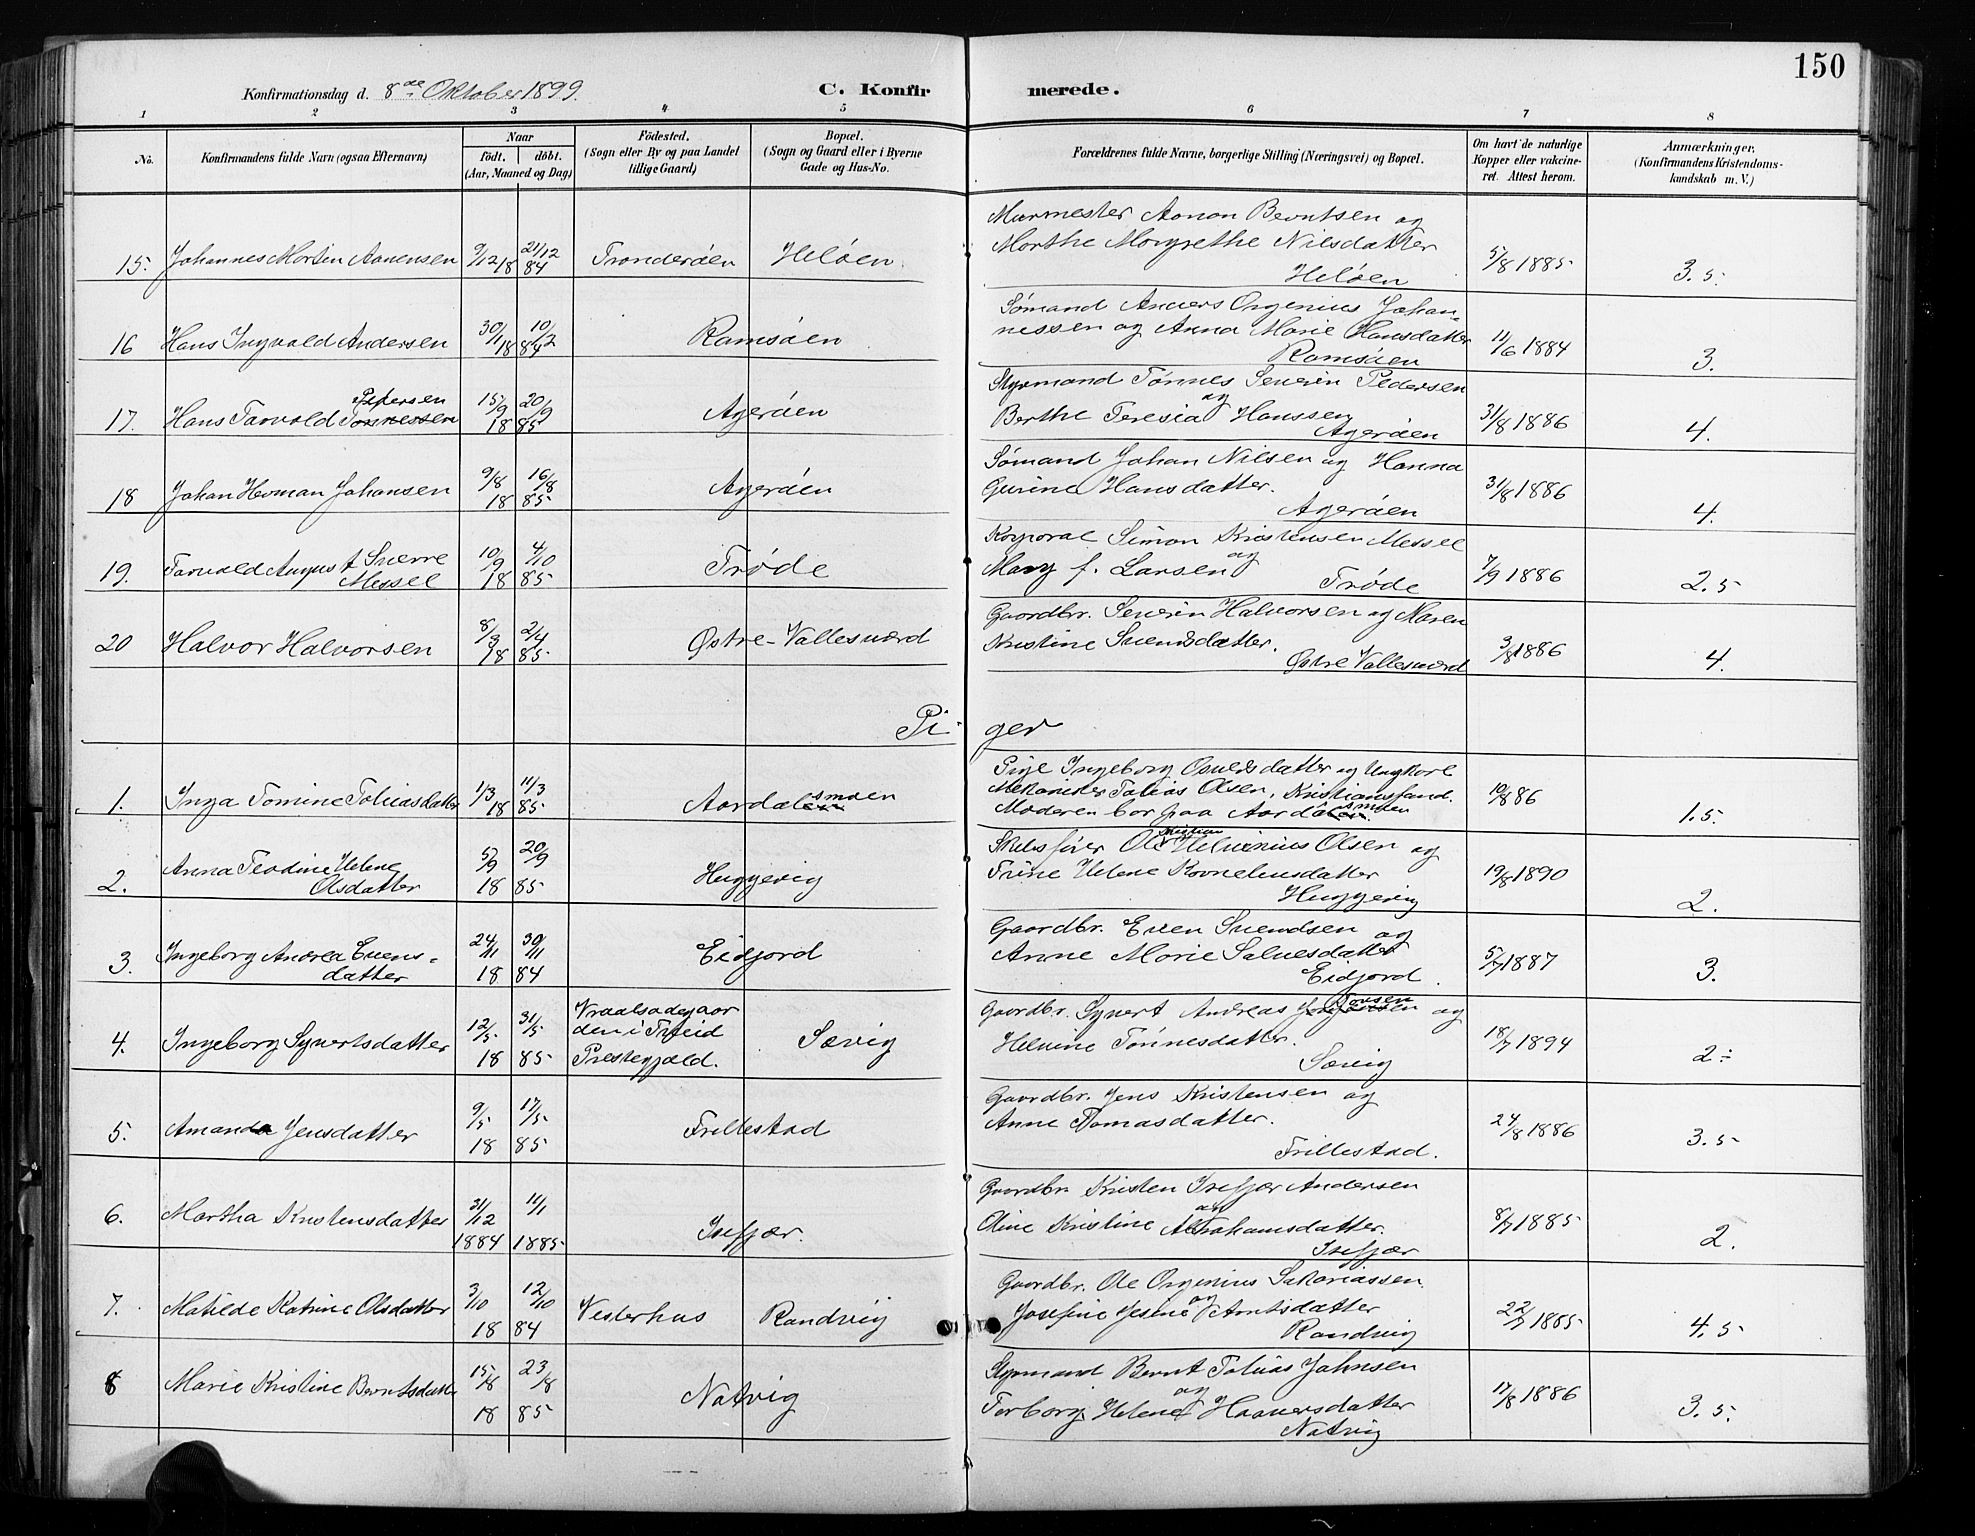 150
Konfirmationsdag d. 8de Oktober 1899. C. Konfir merede.
1 2 3 4 5 6 7 8
No. Konfirmandens fulde Navn (ogsaa Efternavn) Naar født. døbt. (Aar, Maaned og Dag) Fødested. (Sogn eller By og paa Landet tillige Gaard) Bopæl. (Sogn og Gaard eller i Byerne Gade og Hus-No. Forældrenes fulde Navne, borgerlige Stilling (Næringsvei) og Bopæl. Om havt de naturlige Kopper eller vakcineret. Attest herom. Anmærkninger, (Konfirmandens Kristendomskundskab m. V.)
Murmester Aanon Berntsen og
15. Johannes Morten Aanensen 9/12 18 21/12 84 Trønderøen Heløen Marthe Margrethe Nilsdatter 5/8 1885 3.5
Heløen
Sømand Anders Orgenius Johan-
16 Hans Ingvald Andersen 30/1 18 10/2 84 Ramsøen nessen og Anna Marie Hansdatter 11/6 1884 3.
Ramsøen
Styrmand Tønnes Severin Pedersen
17. Hans Tarvald Petersen Tønnessen 15/9 18 20/9 85 Agerøen Berthe Teresia og Hanssen 31/8 1886 4.
Agerøen
Sømand Johan Nilsen og Hanna
18 Johan Herman Johansen 9/8 18 16/8 85 Agerøen Gurine Hansdatter. 31/8 1886 4.
Agerøen
Korporal Simon Kristensen Messel
19. Tarvald August Sverre Messel 10/9 18 4/10 85 Trøde og Mary f. Larsen 7/9 1886 2.5
Trøde
Gaardbr. Severin Halvorsen og Maren
20 Halvor Halvorsen 8/3 18 2/4 85 Østre-Vallesværd Kristine Svendsdatter. 3/8 1886 4.
Østre Vallesværd
Pi- ger
Pige Ingeborg Osuldsdatter og Ungkarl
1. Inga Tomine Tobiasdatter 1/3 18 11/3 85 Aardalsmoen Mekanider Tobias Olsen, Kristianssand. 10/8 86 1.5
Moderen bor paa Aardalsmoen
Skibsfører Ole Helvinius Olsen og
2. Anna Teodine Helene Olsdatter 5/9 18 20/9 85 Huggevig Trine Helene Korneliusdatter 19/8 1890 2.
Huggevig
Gaardbr. Even Svendsen og
3. Ingeborg Andrea Evens- datter 24/11 18 30/11 84 Eidjord Anne Marie Salvesdatter 5/7 1887 3.
Eidjord.
Gaardbr. Syvert Andreas og
4. Ingeborg Syvertsdatter 12/5 18 31/5 85 Vraalsadegaarden i Tveid Prestegjæld. Sævig Helvine Tønnesdatter. 18/7 1894 2÷
Sævig
Gaardbr. Jens Kristensen og
5. Amanda Jensdatter 9/5 18 17/5 85 Frillestad Anne Tomasdatter. 24/8 1886 3.5
Frillestad.
Gaardbr. Kristen Isefjær Andersen
6. Martha Kristensdatter 31/12 1884 11/1 1885 Isefjær. og Oline Kristine Abrahamsdatter. 8/7 1885 2.
Isefjær
Gaardbr. Ole Orgenius Sakariassen
7. Matilde Katrine Olsdatter 3/10 18 12/10 84 Vesterhus Randvig Josefine Jesine og Arntsdatter 22/7 1885 4.5
Randvig
Styrmand Bernt Tobias Jahnsen
8 Marie Kristine Berntsdatter 15/8 18 23/8 85 Natvig og Torborg Helene Haaversdatter 17/8 1886 3.5.
Natvig